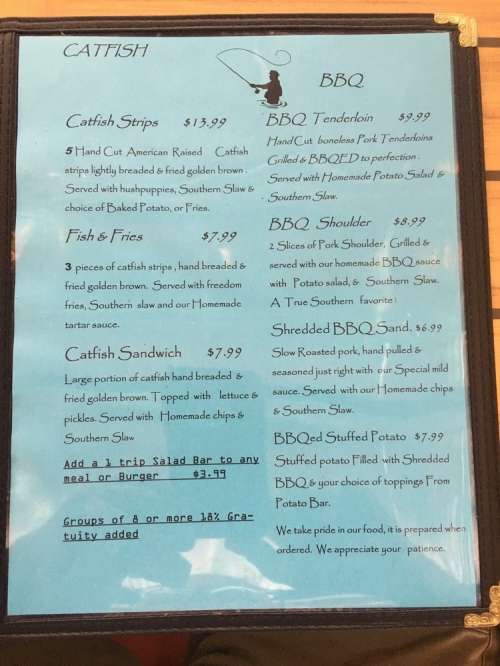 CATFISH
Catfish Strips $13.99
5 Hand Cut American Raised Catfish
strips lightly breaded & fried golden brown.
Served with hushpuppies, Southern Slaw &
choice of Baked Potato, or Fries.
Fish & Fries $7.99
3 pieces of catfish strips, hand breaded &
fried golden brown. Served with freedom
fries, Southern slaw and our Homemade
tartar sauce.
Catfish Sandwich $7.99
Large portion of catfish hand breaded &
fried golden brown. Topped with lettuce &
pickles. Served with Homemade chips &
Southern Slaw
Add a 1 trip Salad Bar to any
meal or Burger $3.99
Groups of 8 or more 18% Gra-
tuity added
BBQ
BBQ Tenderloin $9.99
Hand Cut boneless Pork Tenderloins
Grilled & BBQED to perfection.
Served with Homemade Potato Salad &
Southern Slaw.
BBQ Shoulder $8.99
2 Slices of Pork Shoulder, Grilled &
served with our homemade BBQ sauce
with Potato salad, & Southern Slaw.
A True Southern favorite!
Shredded BBQ Sand. $6.99
Slow Roasted pork, hand pulled &
seasoned just right with our Special mild
sauce. Served with our Homemade chips
& Southern Slaw.
BBQed Stuffed Potato $7.99
Stuffed potato Filled with Shredded
BBQ & your choice of toppings From
Potato Bar.
We take pride in our food, it is prepared when
ordered. We appreciate your patience.